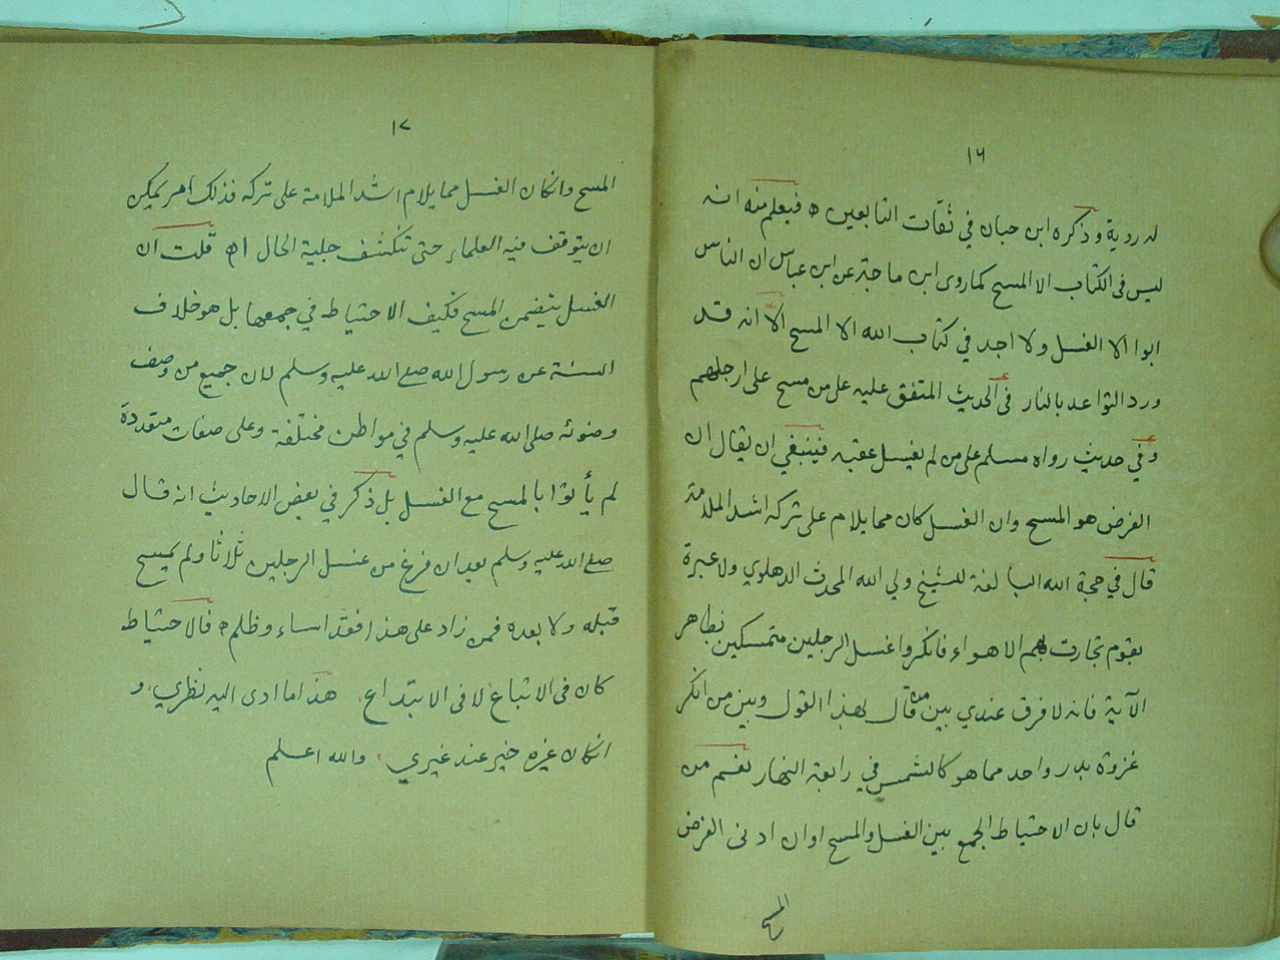 ١٦
له روية وذكره ابن حبان في ثقات التابعين ه فيعلم منه انه
ليس فى الكتاب الا المسح كما روى ابن ماجة عن ابن عباس ان الناس
ابوا الا الغسل ولا اجد في كتاب الله الا المسح الا انه قد
ورد التواعد بالنار فى الحديث المتفق عليه على من مسح على ارجلهم
وفي حديث رواه مسلم على من لم يغسل عقبه فينبغي ان يقال ان
الفرض هو المسح وان الغسل كان مما يلام على تركه اشد الملامة
قال في حجة الله البالغة للشيخ ولي الله المحدث الدهلوي ولا عبرة
بقوم تجارت بهم الاهواء فانكروا غسل الرجلين متمسكين بظاهر
الآية فانه لا فرق عندي بين من قال بهذا القول وبين من انكر
غزوة بدر واحد مما هو كالشمس في رابعة النهار نعم من
قال بان الاحتياط الجمع بين الغسل والمسح او ان ادنى الفرض
المسح
١٧
المسح وانكان الغسل مما يلام اشد الملامة على تركه فذلك امر يمكن
ان يتوقف فيه العلماء حتى تنكشف جلية الحال اه قلت ان
الغسل يتضمن المسح فكيف الاحتياط في جمعها بل هو خلاف
السنة عن رسول الله صلى الله عليه وسلم لان جميع من وصف
وضوئه صلى الله عليه وسلم في مواطن مختلفة وعلى صفات متعددة
لم يأتوا بالمسح مع الغسل بل ذكر في بعض الاحاديث انه قال
صلى الله عليه وسلم بعد ان فرغ من غسل الرجلين ثلاثا ولم يمسح
قبله ولا بعده فمن زاد على هذا فقد اساء وظلم ه فالاحتياط
كان فى الاتباع لا فى الابتداع هذا ما ادى اليه نظري و
انكان غيره خير عند غيري والله اعلم